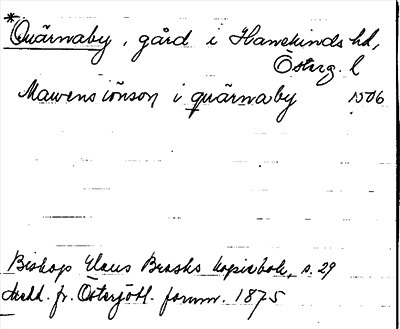 *Quärnaby, gård i Hanekinds hd,
Österg. l
Mawens iönson i quärnaby 1506
Biskop Hans Brasks kopiebok, s. 29
Medd. fr. Östergötl. fornm. 1875